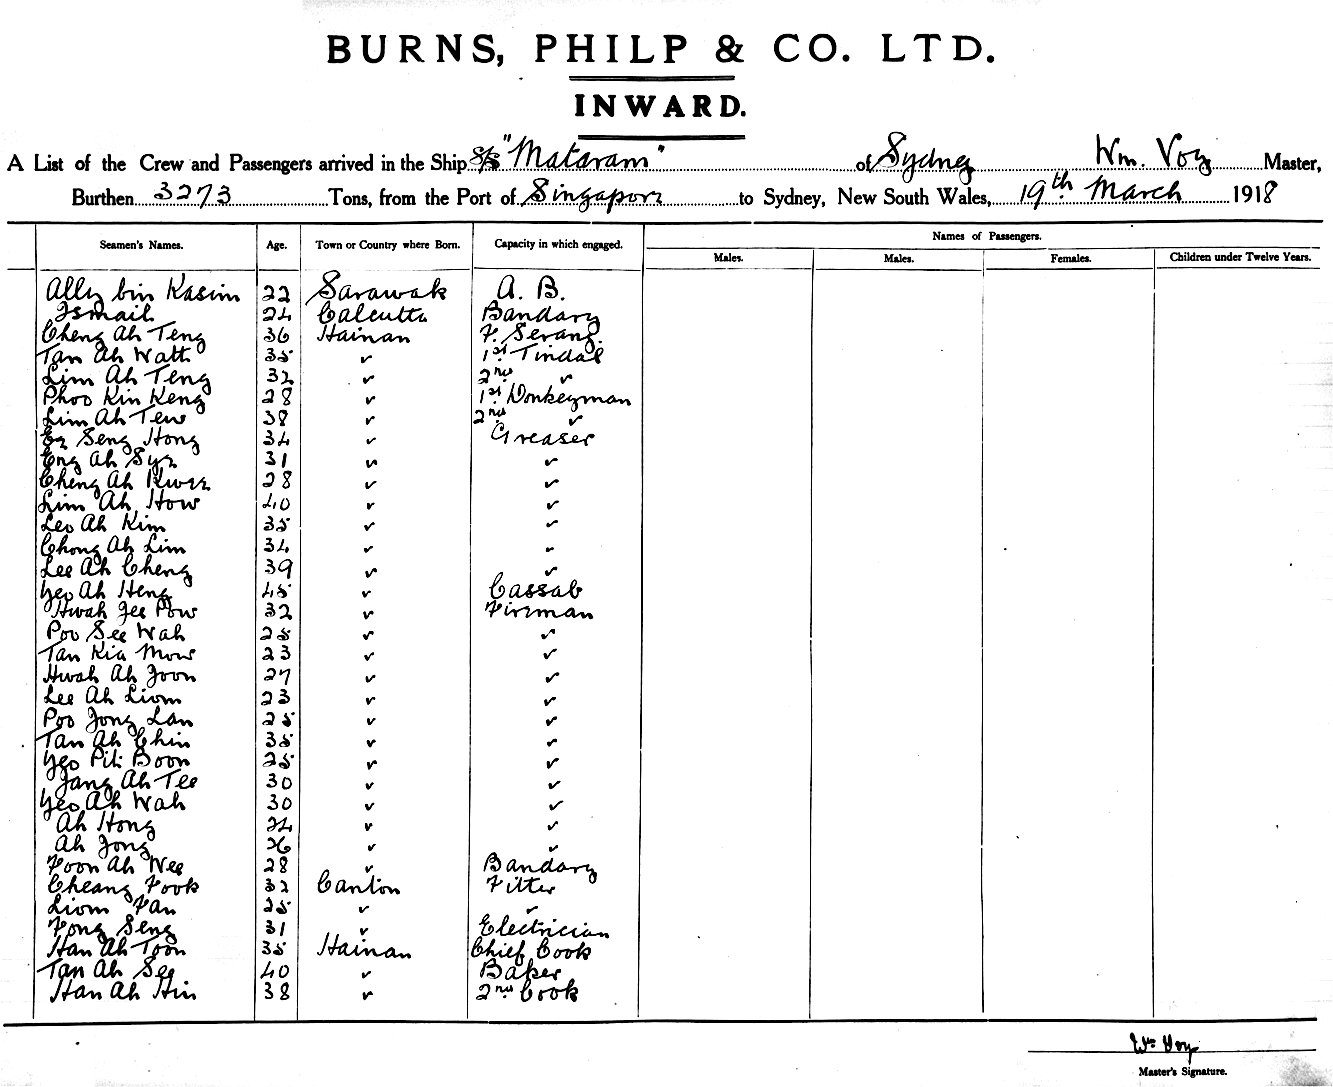 BURNS, PHILP & CO. LTD.
INWARD.
A List of the Crew and Passengers arrived in the Ship S/S "Mataram" of Sydney Wm. Voy Master,
Burthen 3273 Tons, from the Port of Singapore to Sydney, New South Wales, 19th March 1918
Names of Passengers.
Seamen's Names. Age. Town or Country where Born. Capacity in which engaged. Males. Males. Females. Children under Twelve Years.
Ally bin Kasim 22 Sarawak A. B.
Ismail 24 Calcutta Bandary
Cheng Ah Teng 36 Hainan F. Serang.
Tan Ah Watt 35 " 1st Tindal
Lim Ah Teng 32 " 2nd "
Phoo Kin Keng 28 " 1st Donkeyman
Lim Ah Tew 38 " 2nd "
Seng Hong 34 " Greaser
Eng Ah 31 " "
Cheng Ah 28 " "
Lim Ah How 40 " "
Leo Ah Kim 35 " "
Chong Ah Lim 34 " "
Lee Ah Cheng 39 " "
Yeo Ah Heng 45 " Cassab
Hwah Jee Pow 32 " Fireman
Poo See Wah 25 " "
Tan Kia Mow 23 " "
Hwah Ah Joon 27 " "
Lee Ah Liom 23 " "
Poo Jong Lan 25 " "
Tan Ah Chin 35 " "
Yeo Pit Boon 25 " "
Jang Ah Tee 30 " "
Yeo Ah Wah 30 " "
Ah Hong 24 " "
Ah Jong 26 " "
Foon Ah Nee 28 " Bandary
Cheang Fook 32 Canton Fitter
Liom Fan 25 " "
Fong Seng 31 " Electrician
Han Ah Toon 35 Hainan Chief Cook
Tan Ah See 40 " Baker
Han Ah Hin 38 " 2nd Cook
Wm Voy
Master's Signature.